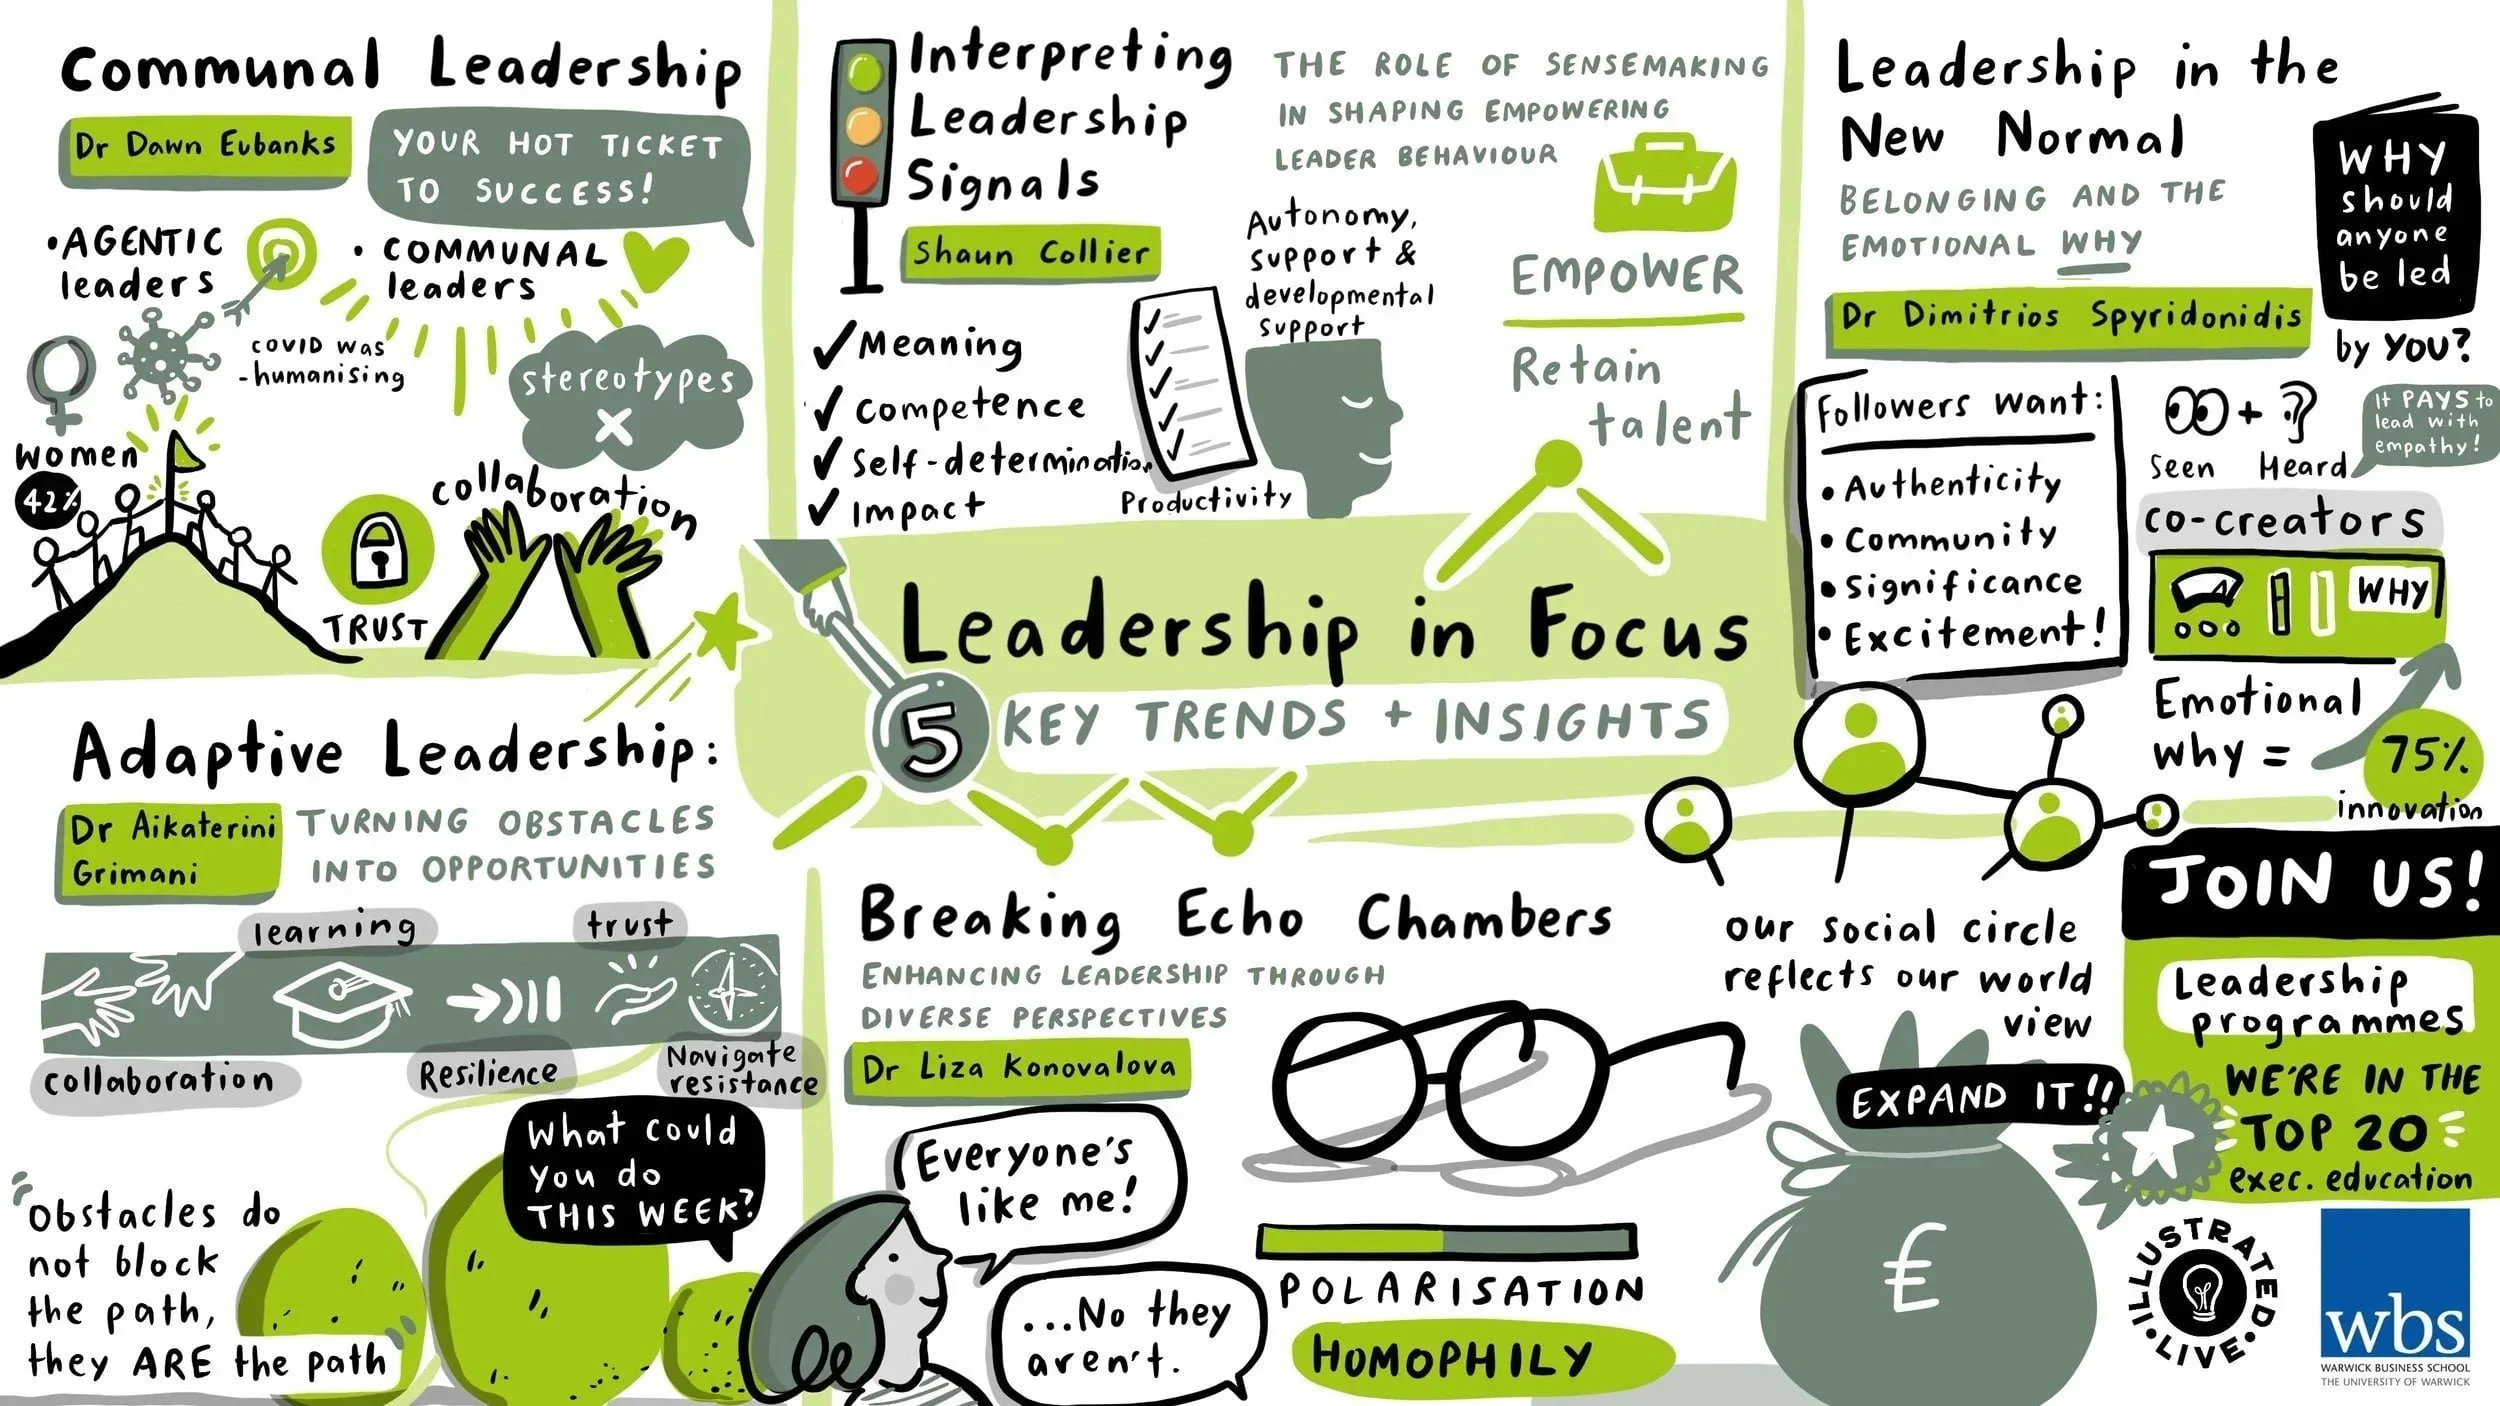 Communal Leadership
Dr Dawn Eubanks
YOUR HOT TICKET
TO SUCCESS!
• AGENTIC
leaders
• COMMUNAL
leaders
COVID was
-humanising
stereotypes
X
women
42%
TRUST
collaboration
Interpreting
Leadership
Signals
Shaun Collier
THE ROLE OF SENSEMAKING
IN SHAPING EMPOWERING
LEADER BEHAVIOUR
Autonomy,
support &
developmental
support
✓ Meaning
✓ Competence
✓ Self-determination
✓ Impact
Productivity
EMPOWER
Retain
talent
Leadership in the
New Normal
BELONGING AND THE
EMOTIONAL WHY
Dr Dimitrios Spyridonidis
WHY
should
anyone
be led
by YOU?
Followers want:
• Authenticity
• Community
• Significance
• Excitement!
+
Seen Heard
It PAYS to
lead with
empathy!
co-creators
WHY
Emotional
why =
75%
innovation
Leadership in Focus
5 KEY TRENDS + INSIGHTS
Adaptive Leadership:
Dr Aikaterini
Grimani
TURNING OBSTACLES
INTO OPPORTUNITIES
learning
trust
collaboration
Resilience
Navigate
resistance
What could
you do
THIS WEEK?
"Obstacles do
not block
the path,
they ARE the path"
Breaking Echo Chambers
ENHANCING LEADERSHIP THROUGH
DIVERSE PERSPECTIVES
Dr Liza Konovalova
Everyone's
like me!
...No they
aren't.
POLARISATION
HOMOPHILY
our social circle
reflects our world
view
EXPAND IT!!
£
JOIN US!
Leadership
programmes
WE'RE IN THE
TOP 20
exec. education
ILLUSTRATED • LIVE •
wbs
WARWICK BUSINESS SCHOOL
THE UNIVERSITY OF WARWICK